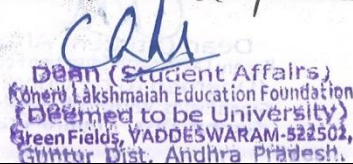 Dean (Student Affairs)
Koneru Lakshmaiah Education Foundation
(Deemed to be University)
Green Fields, VADDESWARAM-522502,
Guntur Dist., Andhra Pradesh.